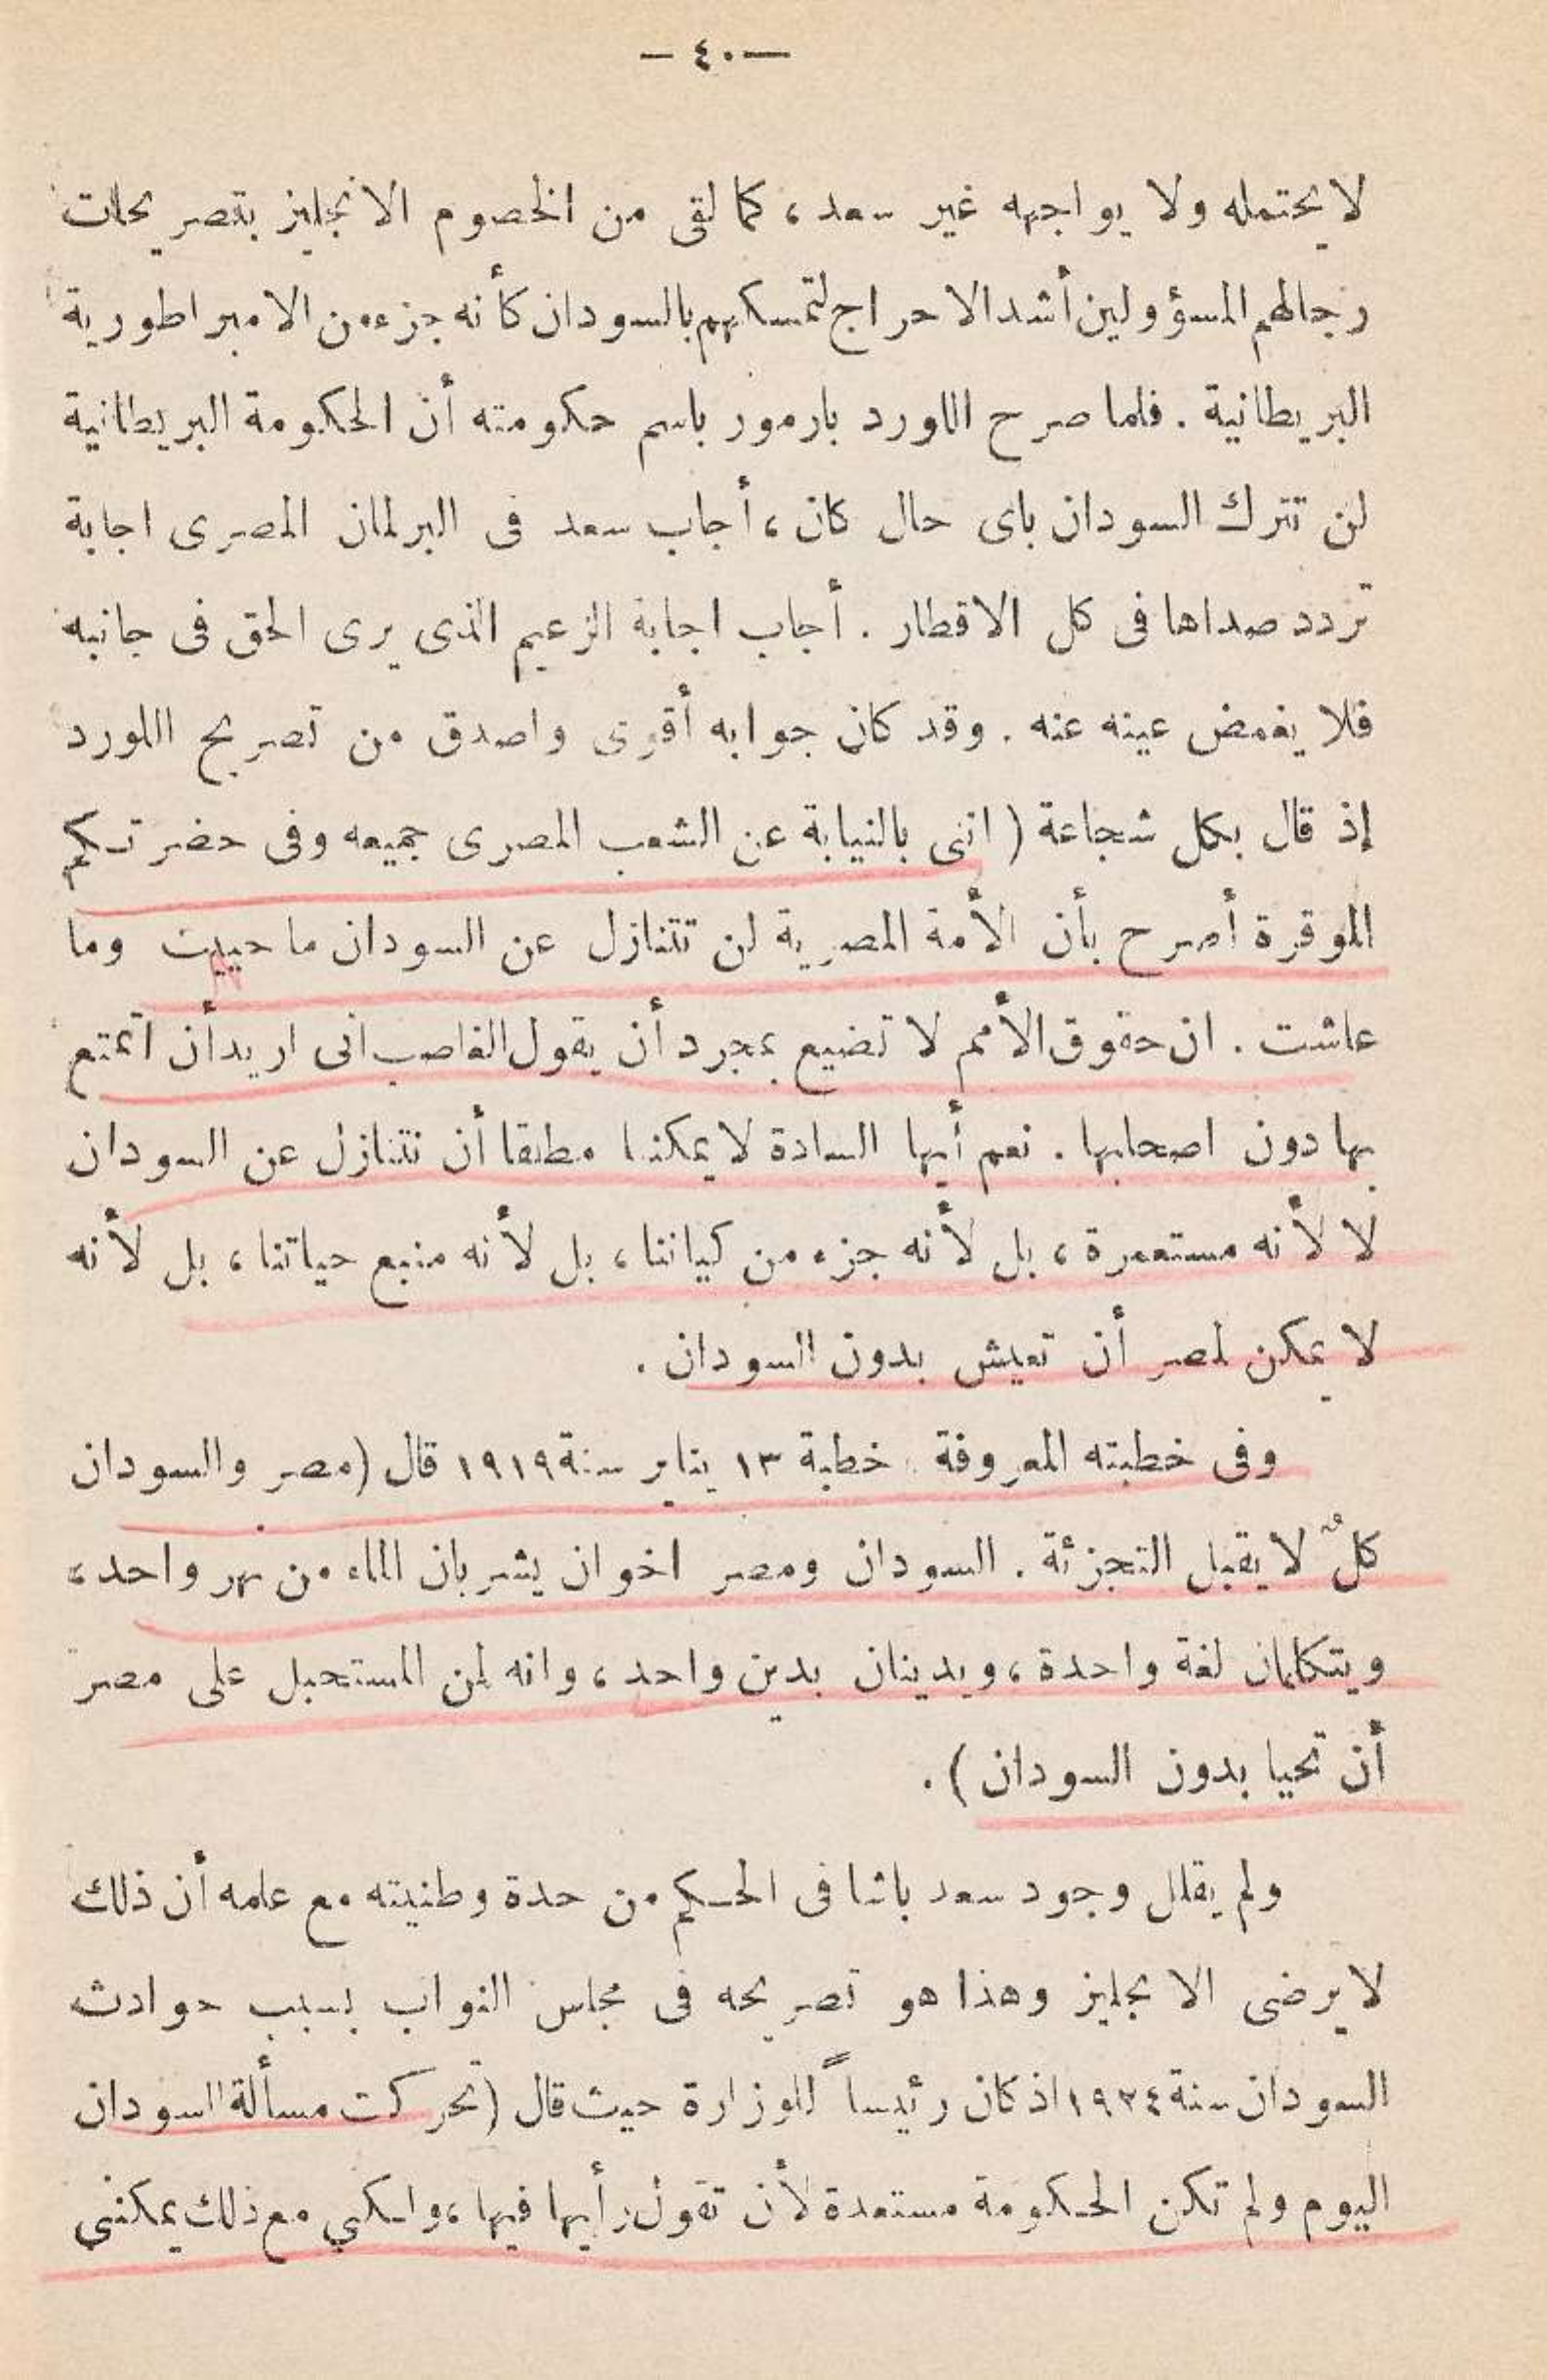 — ٤٠ —
لا يحتمله ولا يواجهه غير سعد، كما لقى من الخصوم الانجليز بتصريحات
رجالهم المسؤولين أشد الاحراج لتمسكهم بالسودان كأنه جزء من الامبراطورية
البريطانية . فلما صرح اللورد بارمور باسم حكومته أن الحكومة البريطانية
لن تترك السودان باى حال كان، أجاب سعد فى البرلمان المصرى اجابة
تردد صداها فى كل الاقطار . أجاب اجابة الزعيم الذى يرى الحق فى جانبه
فلا يغمض عينه عنه . وقد كان جوابه أقوى واصدق من تصريح اللورد
إذ قال بكل شجاعة ( اننى بالنيابة عن الشعب المصرى جميعه وفى حضرتكم
الموقرة أصرح بأن الأمة المصرية لن تتنازل عن السودان ما حييت وما
عاشت . ان حقوق الأمم لا تضيع بمجرد أن يقول الغاصب انى اريد أن اتمتع
بها دون اصحابها . نعم أيها السادة لا يمكننا مطلقا أن نتنازل عن السودان
لا لأنه مستعمرة، بل لأنه جزء من كياننا، بل لأنه منبع حياتنا، بل لأنه
لا يمكن لمصر أن تعيش بدون السودان .
وفى خطبته المعروفة خطبة ١٣ يناير سنة ١٩١٩ قال (مصر والسودان
كلٌ لا يقبل التجزئة . السودان ومصر اخوان يشربان الماء من نهر واحد،
ويتكلمان لغة واحدة، ويدينان بدين واحد، وانه لمن المستحيل على مصر
أن تحيا بدون السودان ) .
ولم يقلل وجود سعد باشا فى الحكم من حدة وطنيته مع علمه أن ذلك
لا يرضى الانجليز وهذا هو تصريحه فى مجلس النواب بسبب حوادث
السودان سنة ١٩٢٤ اذ كان رئيساً للوزارة حيث قال (تحركت مسألة السودان
اليوم ولم تكن الحكومة مستعدة لأن تقول رأيها فيها، ولكني مع ذلك يمكنني